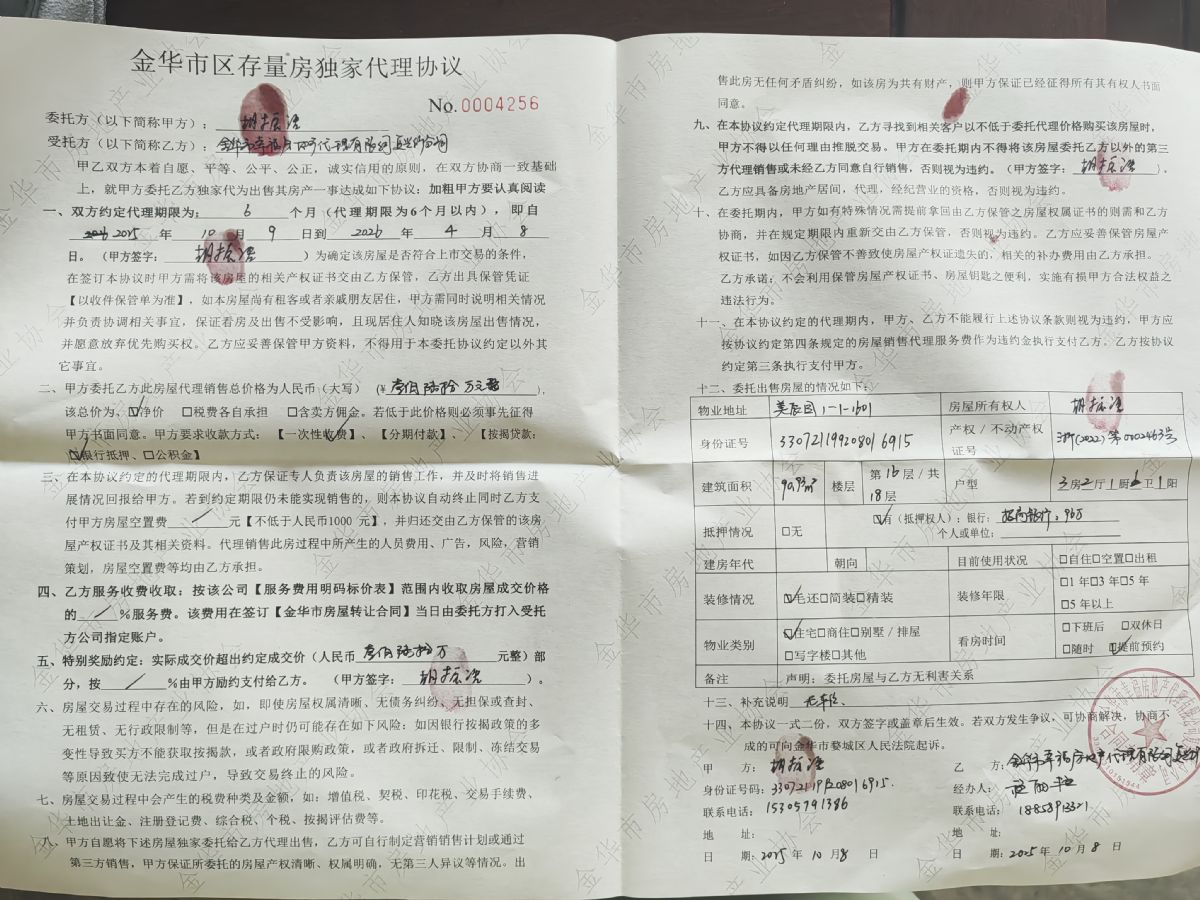 金华市区存量房独家代理协议
No.0004256
委托方（以下简称甲方）：
受托方（以下简称乙方）：金华市幸福房地产代理有限公司
甲乙双方本着自愿、平等、公平、公正，诚实信用的原则，在双方协商一致基础
上，就甲方委托乙方独家代为出售其房产一事达成如下协议：加粗甲方要认真阅读
一、双方约定代理期限为： 6 个月（代理期限为6个月以内），即自
2025 年 10 月 9 日到 2026 年 4 月 8
日。（甲方签字： ）为确定该房屋是否符合上市交易的条件，
在签订本协议时甲方需将该房屋的相关产权证书交由乙方保管，乙方出具保管凭证
【以收件保管单为准】，如本房屋尚有租客或者亲戚朋友居住，甲方需同时说明相关情况
并负责协调相关事宜，保证看房及出售不受影响，且现居住人知晓该房屋出售情况，
并愿意放弃优先购买权。乙方应妥善保管甲方资料，不得用于本委托协议约定以外其
它事宜。
二、甲方委托乙方此房屋代理销售总价格为人民币（大写）（¥ 壹佰陆拾万元整），
该总价为，☑净价 □税费各自承担 □含卖方佣金。若低于此价格则必须事先征得
甲方书面同意。甲方要求收款方式：【一次性收费】、【分期付款】、【按揭贷款：
☑银行抵押、□公积金】
三、在本协议约定的代理期限内，乙方保证专人负责该房屋的销售工作，并及时将销售进
展情况回报给甲方。若到约定期限仍未能实现销售的，则本协议自动终止同时乙方支
付甲方房屋空置费 / 元【不低于人民币1000 元】，并归还交由乙方保管的该房
屋产权证书及其相关资料。代理销售此房过程中所产生的人员费用、广告，风险，营销
策划，房屋空置费等均由乙方承担。
四、乙方服务收费收取：按该公司【服务费用明码标价表】范围内收取房屋成交价格
的 / %服务费。该费用在签订【金华市房屋转让合同】当日由委托方打入受托
方公司指定账户。
五、特别奖励约定：实际成交价超出约定成交价（人民币 壹佰陆拾万 元整）部
分，按 / %由甲方励约支付给乙方。（甲方签字： ）。
六、房屋交易过程中存在的风险，如，即使房屋权属清晰、无债务纠纷、无担保或查封、
无租赁、无行政限制等，但是在过户时仍可能存在如下风险：如因银行按揭政策的多
变性导致买方不能获取按揭款，或者政府限购政策，或者政府拆迁、限制、冻结交易
等原因致使无法完成过户，导致交易终止的风险。
七、房屋交易过程中会产生的税费种类及金额，如：增值税、契税、印花税、交易手续费、
土地出让金、注册登记费、综合税、个税、按揭评估费等。
八、甲方自愿将下述房屋独家委托给乙方代理出售、乙方可自行制定营销销售计划或通过
第三方销售，甲方保证所委托的房屋产权清晰、权属明确，无第三人异议等情况。出
售此房无任何矛盾纠纷，如该房为共有财产，则甲方保证已经征得所有其有权人书面
同意。
九、在本协议约定代理期限内，乙方寻找到相关客户以不低于委托代理价格购买该房屋时，
甲方不得以任何理由推脱交易。甲方在委托期内不得将该房屋委托乙方以外的第三
方代理销售或未经乙方同意自行销售，否则视为违约。（甲方签字： ）。
乙方应具备房地产居间，代理，经纪营业的资格，否则视为违约。
十、在委托期内，甲方如有特殊情况需提前拿回由乙方保管之房屋权属证书的则需和乙方
协商，并在规定期限内重新交由乙方保管，否则视为违约。乙方应妥善保管房屋产
权证书，如因乙方保管不善致使房屋产权证遗失的，相关的补办费用由乙方承担。
乙方承诺：不会利用保管房屋产权证书、房屋钥匙之便利，实施有损甲方合法权益之
违法行为。
十一、在本协议约定的代理期内，甲方、乙方不能履行上述协议条款则视为违约，甲方应
按协议约定第四条规定的房屋销售代理服务费作为违约金执行支付乙方。乙方按协议
约定第三条执行支付甲方。
十二、委托出售房屋的情况如下：
物业地址 美辰园1-1-1601 房屋所有权人
身份证号 330721199208016915 产权／不动产权证号 浙(2022)第0002463号
建筑面积 90.93m² 楼层 第16层／共18层 户型 3房2厅1厨1卫1阳
抵押情况 □无 ☑有（抵押权人）：银行：招商银行，96万
个人或单位：
建房年代 朝向 目前使用状况 □自住□空置□出租
装修情况 ☑毛还□简装□精装 装修年限 □1年□3年□5年
□5年以上
物业类别 ☑住宅□商住□别墅／排屋
□写字楼□其他 看房时间 □下班后 □双休日
□随时 ☑提前预约
备注 声明：委托房屋与乙方无利害关系
十三、补充说明 无车位、
十四、本协议一式二份，双方签字或盖章后生效。若双方发生争议，可协商解决，协商不
成的可向金华市婺城区人民法院起诉。
甲 方：
身份证号码：330721199208016915.
联系电话：15305791386
地 址：
日 期：2025 年 10 月 8 日
乙 方：金华市幸福房地产代理有限公司
经办人：
联系电话：
地 址：
日 期：2025 年 10 月 8 日